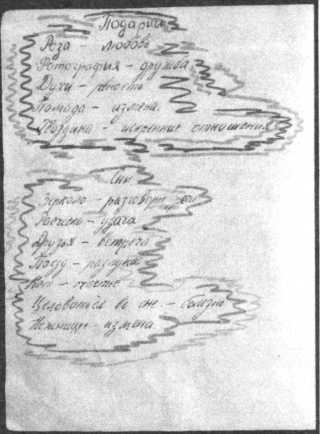 Подарки
Роза - любовь
Фотография - дружба
Духи - ревность
Помада - измена
Гвоздика - искренние отношения
Сны
Зеркало - разговор
- удача
Друзья - встреча
Поезд - разлука
- счастье
Целоваться во сне - болезнь
Ножницы - измена